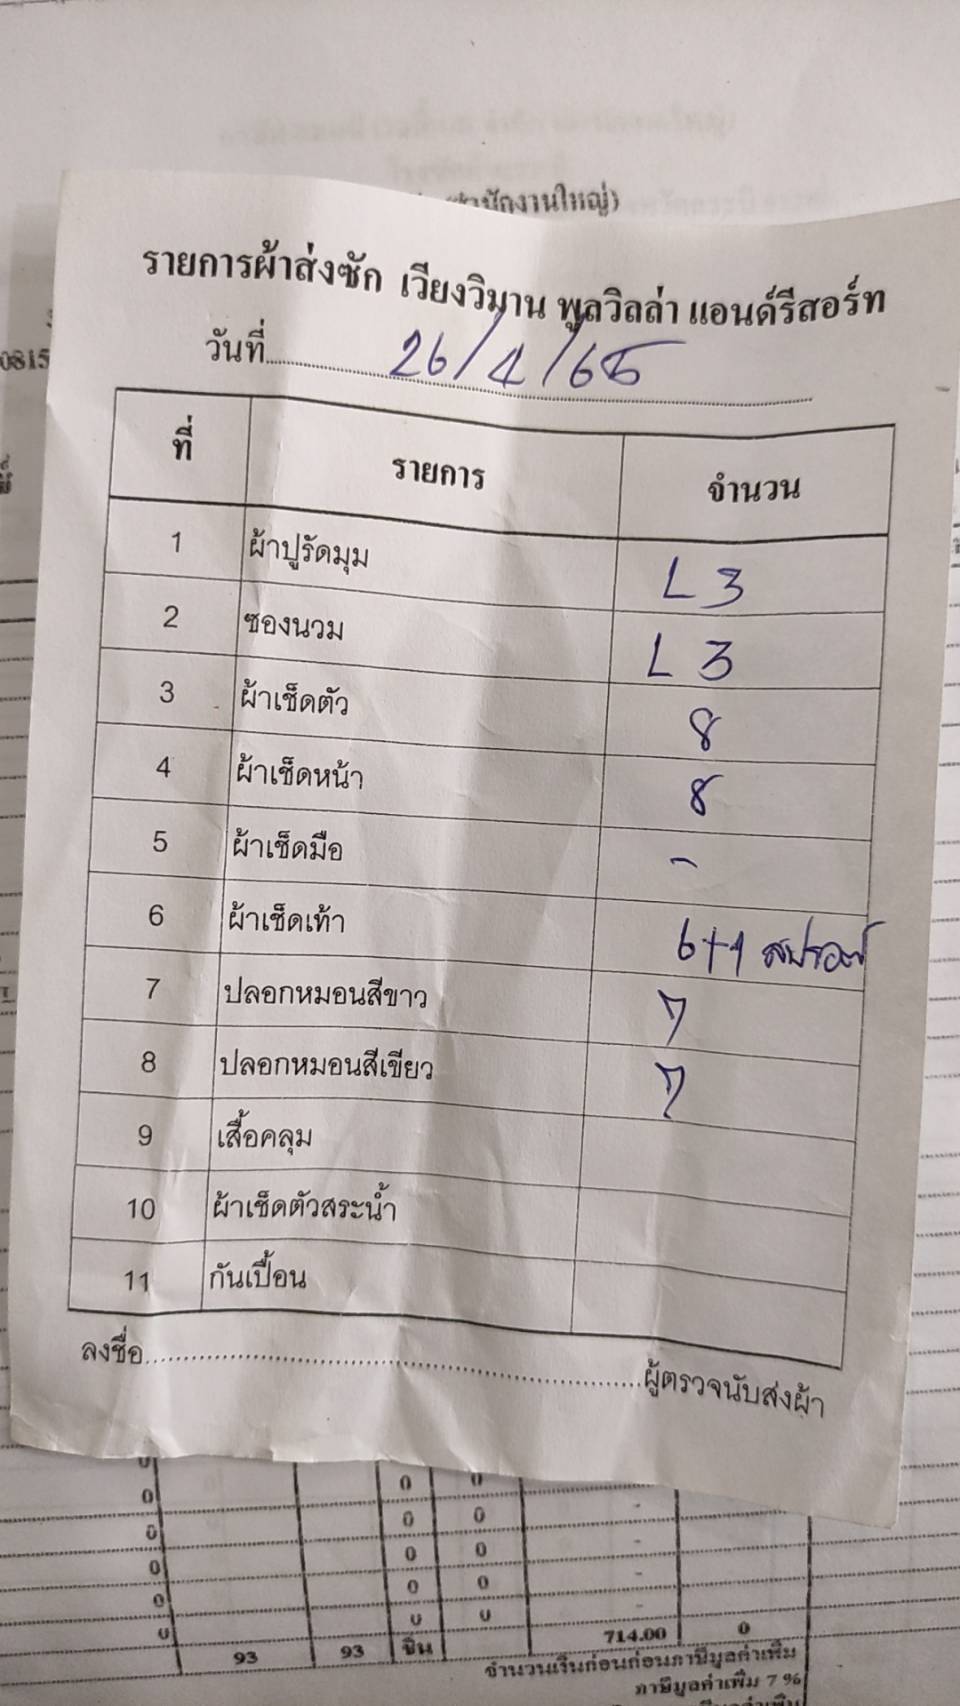 สำนักงานใหญ่)
รายการผ้าส่งซัก เวียงวิมาน พูลวิลล่า แอนด์รีสอร์ท
0815
วันที่ 26/4/65
ที่ รายการ จำนวน
1 ผ้าปูรัดมุม L 3
2 ซองนวม L 3
3 ผ้าเช็ดตัว 8
4 ผ้าเช็ดหน้า 8
5 ผ้าเช็ดมือ -
6 ผ้าเช็ดเท้า 6+1
7 ปลอกหมอนสีขาว 7
8 ปลอกหมอนสีเขียว 7
9 เสื้อคลุม
10 ผ้าเช็ดตัวสระน้ำ
11 กันเปื้อน
ลงชื่อ ผู้ตรวจนับส่งผ้า
0 0 0
0 0 0 -
0 0 0 -
0 0 0 -
0 0 0 -
0 0 0 -
93 93 ชิ้น 714.00 0
จำนวนเงินก่อนก่อนภาษีมูลค่าเพิ่ม
ภาษีมูลค่าเพิ่ม 7 %